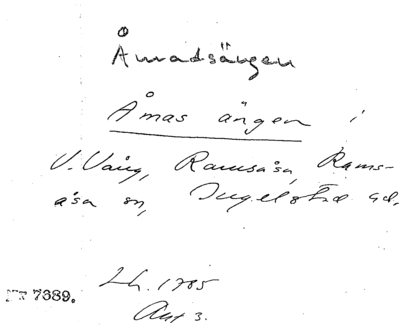 Åmadsängen
Åmas ängen i
V. Vång, Ramsåsa, Rams-
åsa sn, Ingelstad hd.
Lh. 1785
7389.
Akt 3.